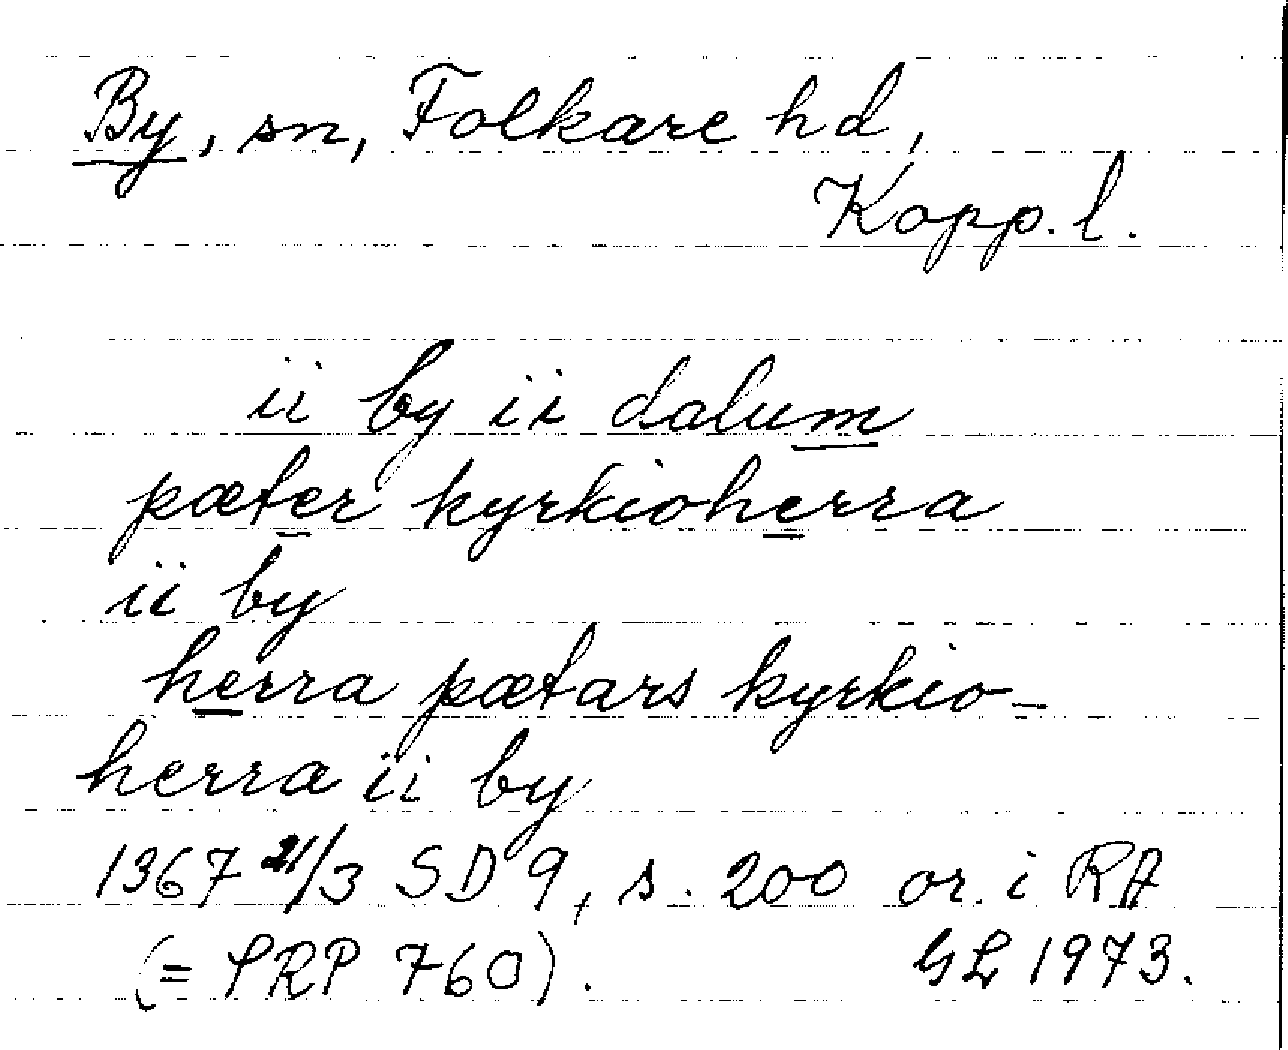 By, sn, Folkare hd,
Kopp. l.
ii by ii dalum
pæter kyrkioherra
ii by
herra pætars kyrkio-
herra ii by
1367 21/3 SD 9, s. 200 or. i RA
(= SRP 760). GL 1973.